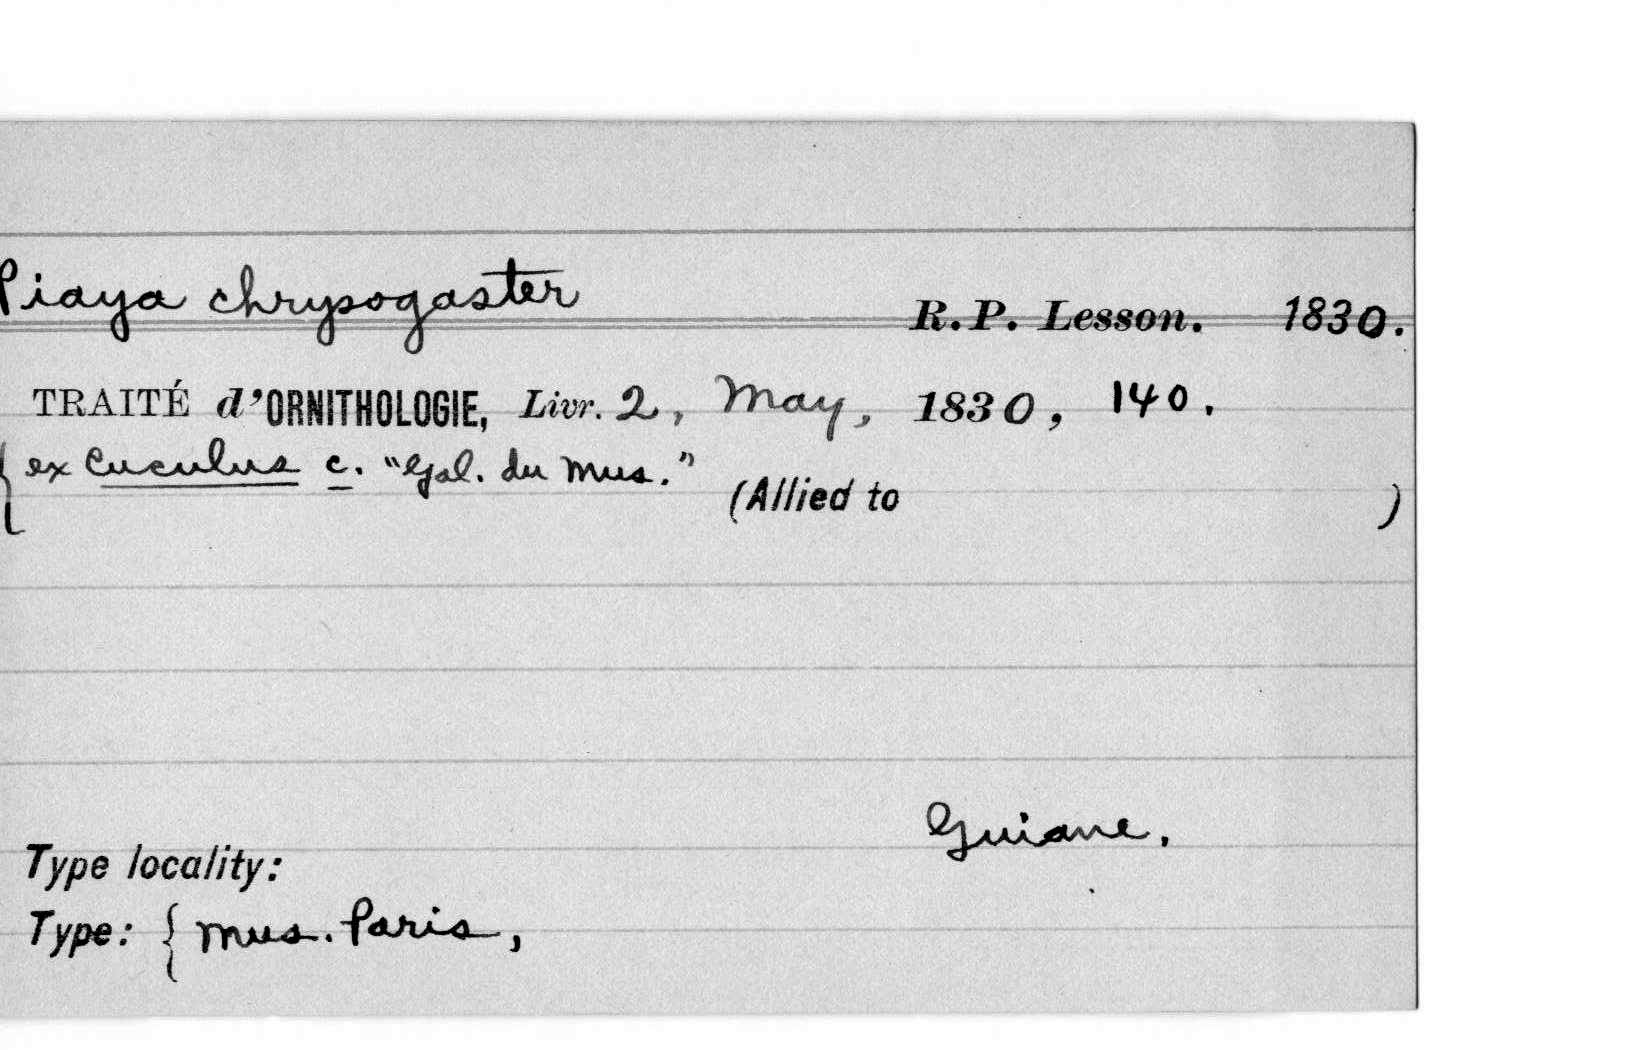 Piaya chrysogaster R. P. Lesson. 1830.
TRAITÉ d'ORNITHOLOGIE, Livr. 2, May, 1830, 140.
{ex Cuculus c. "Gal. du Mus." (Allied to )
Guiane.
Type locality:
Type: { Mus. Paris,